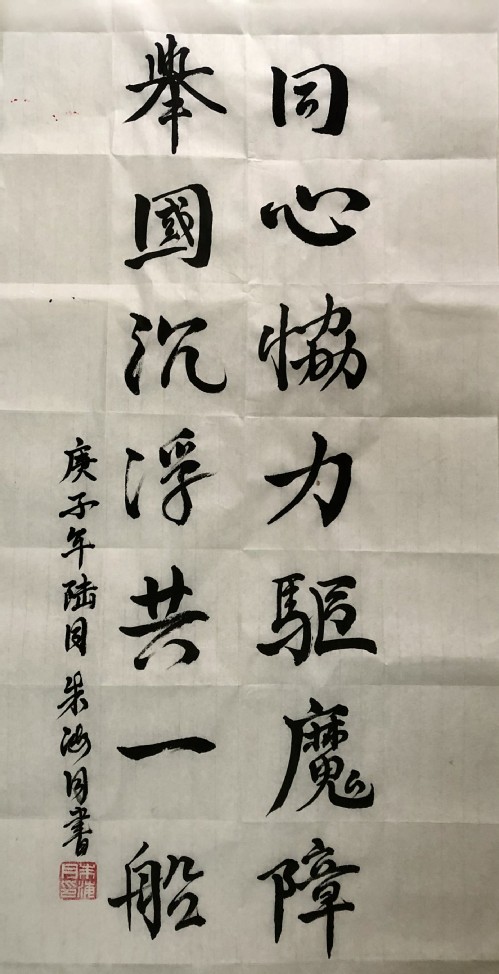 同心協力驅魔障
舉國沉浮共一船
庚子年陆月 朱海月書
朱海月印